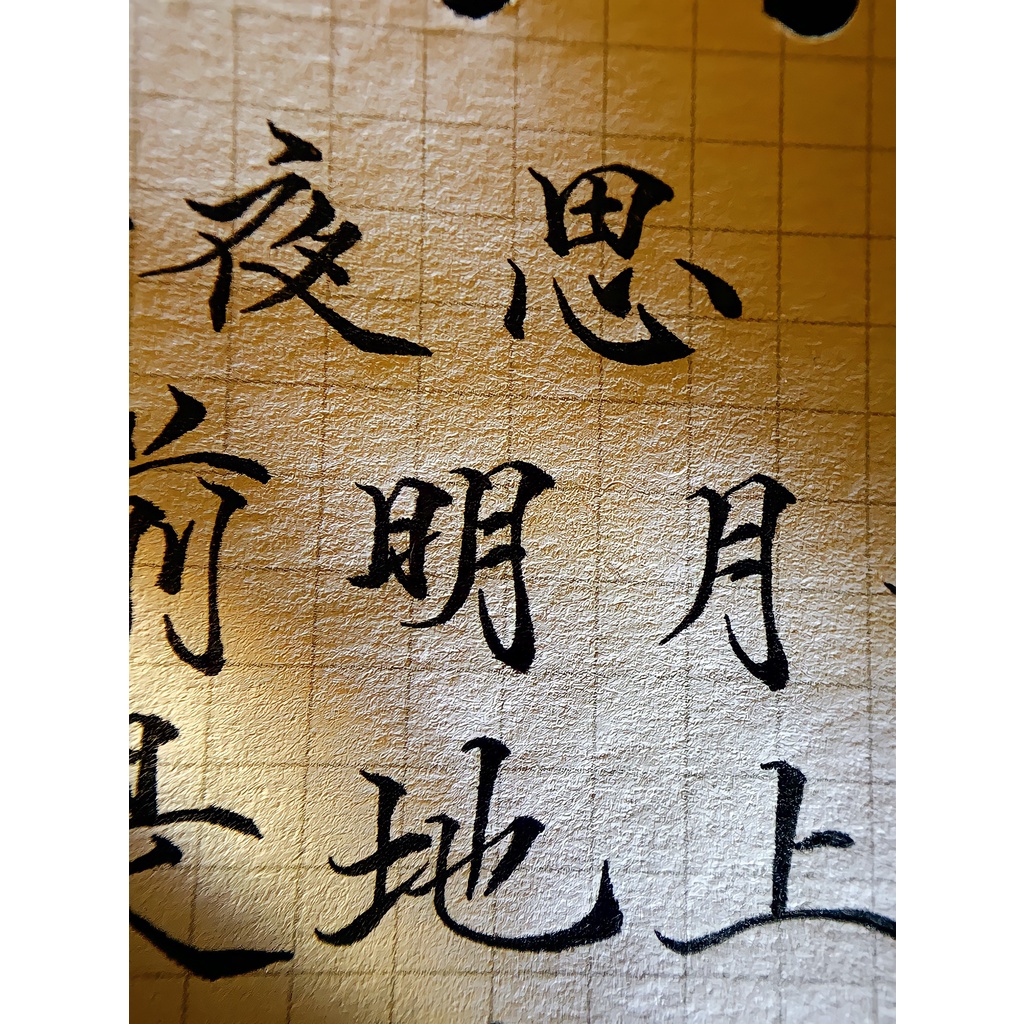 夜思
前明月
是地上